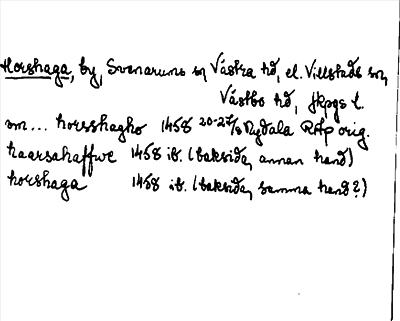 Horshaga, by, Svenarums sn Västra hd, el. Villstads sn,
Västbo hd, Jkpgs l.
om... horsshagho 1458 20-27/3 Nydala RAp orig.
haarsahaffwe 1458 ib. (baksida, annan hand)
horshaga 1458 ib. (baksida, samma hand?)